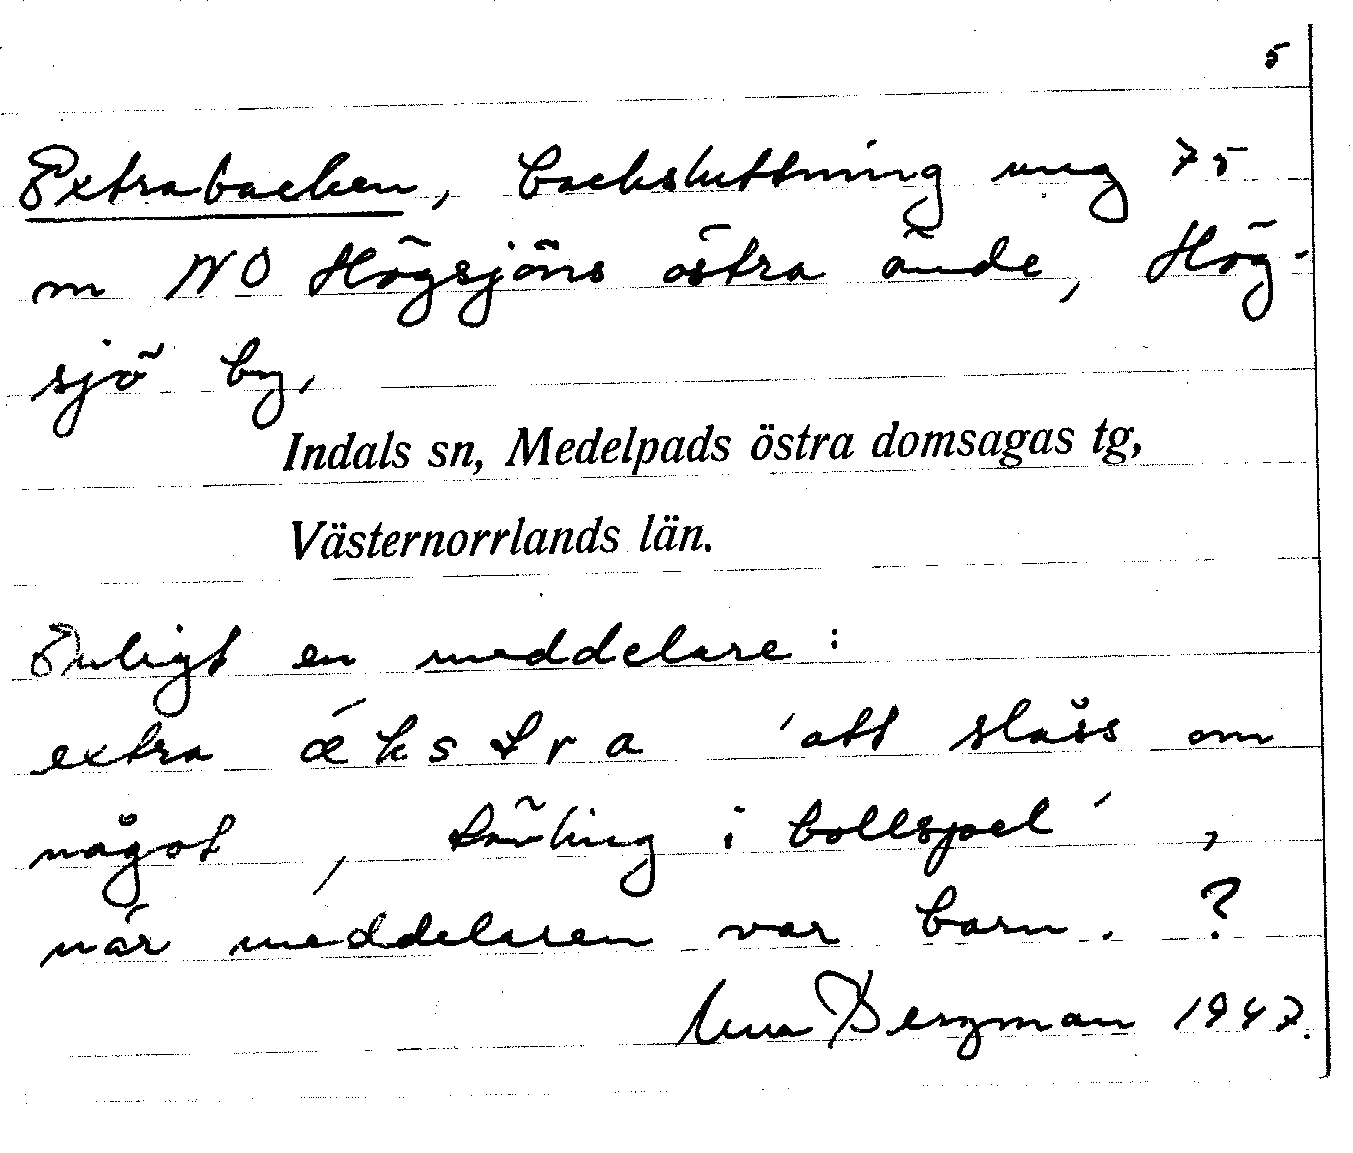 5
Extrabacken, backsluttning ung 75
m NO Högsjöns östra ände, Hög-
sjö by,
Indals sn, Medelpads östra domsagas tg,
Västernorrlands län.
Enligt en meddelare:
extra ǽkstra 'att slåss om
något, tävling i bollspel',
när meddelaren var barn. ?
Bergman 1947.